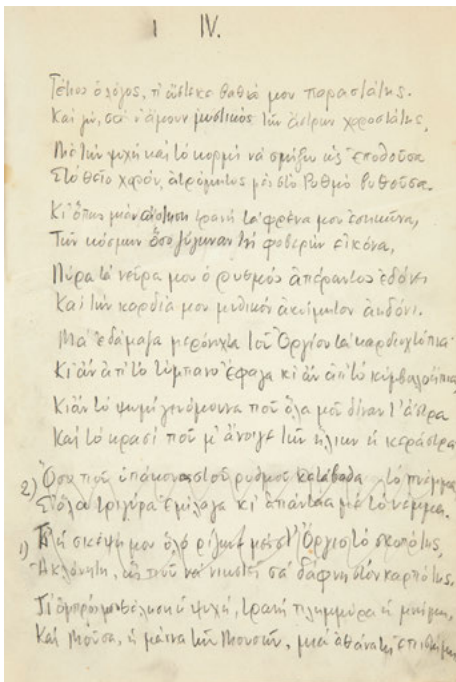 IV.
Τέτιος ὁ λόγος, τί ὥστεκε βαθιά μου παραστάτης.
Καὶ μὴν, σὰ ν' ἄμουν μυστικὸς τῶν ἄστρων χοροστάτης,
Μὲ τὴν ψυχὴ καὶ τὸ κορμὶ νὰ σμίξω ὡς ἐποθοῦσα
Στὸ θεῖο χορόν, ἀτρόμητος μὲς στὸ Ρυθμὸ βυθοῦσα.
Κι' ὅπως μιὰν τρανὴ τὰ φρένα μου
Τῶν κόσμων ὅσο ζύγωναν τὴ φοβερὴν εἰκόνα,
Πύρα τὰ νεῦρα μου ὁ ρυθμὸς ἀπέραντος ἐδόνει
Καὶ τὴν καρδιά μου μυθικὸν ἀκοίμητον ἀηδόνι.
Μὰ ἐδάμαζα μερόνυχτα τοῦ Ὄργιου τὰ καρδιοχτύπια
Κι ἂν ἀπ' τὸ τύμπανο ἔφαγα κι ἂν ἀπ' τὸ κύμβαλο ἤπια
Κι ἂν τὸ ψωμὶ γενόμουνα ποὺ ὅλα μοῦ δίναν τ' ἄστρα
Καὶ τὸ κρασὶ ποὺ μ' ἄνοιγε τῶν ἥλιων ἡ κεράστρα
2) Ὅσο ποὺ ὑπάκουα στοῦ ρυθμοῦ κατάβαθα τὸ πνέγμα
Σ' ὅλα τριγύρα ἐμίλαγα κι' ἀπάνταα μὲ τὸ νέμμα.
1) ἡ σκέψη μου ὅλο μὲς στ' Ὄργιο τὸ σκοπό της,
Ἀκλόνητη, ὡς ποὺ νὰ νικιστεῖ σὰ δάφνη στὸν καρπό της,
Τί ὀμπρός μου ἡ ψυχή, τρανὴ πλημμύρα ἡ μνήμη,
Καὶ Μοῦσα, ἡ μάννα τῶν Μουσῶν, μιὰ ἀθάνατη